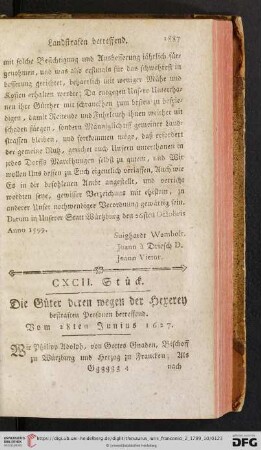 Landstrasen betreffend. 1887
mit solche Besichtigung und Ausbesserung jährlich fürs
genohmen, und was also erstmals für das schwehrest in
besserung gerichtet, beharrlich mit weniger Mühe und
Kosten erhalten werde; Da entgegen Unsere Unterthas
nen ihre Güther mit schrancken zum besten zu befries
digen, damit Reitende und Fuhrleuth ihnen weither nit
schaden fürgen, sondern Männigslichst gemeiner lands
strassen bleiben, und fortkommen möge, daß befördert
der gemeine Nutz, gereichet auch Unsern unterthanen in
jedes Dorffs Marckhungen selbst zu gutem, und Wir
wollen Uns dessen zu Euch eigentlich verlassen, Auch wie
Es in die befohlenen Ambt angestelle, und verricht
worden seye, gewisser Verzeichnus mit ehistem, zu
anderer Unser nothwendiger Verordnung gewärtig sein.
Datum in Unserer Statt Würzburg den 26sten Octobris
Anno 1599.
Suighardt Wamholt.
Juann à Driesch D.
Juann Vietor.
CXCII. Stück.
Die Güter deren wegen der Hexerey
bestraften Personen betreffend.
Vom 18ten Junius 1627.
Wir Philipp Adolph, von Gottes Gnaden, Bischoff
zu Würzburg und Herzog zu Francken; Als
Gggggg 4 nach
UNIVERSITÄTS-BIBLIOTHEK HEIDELBERG
Gefördert durch DFG